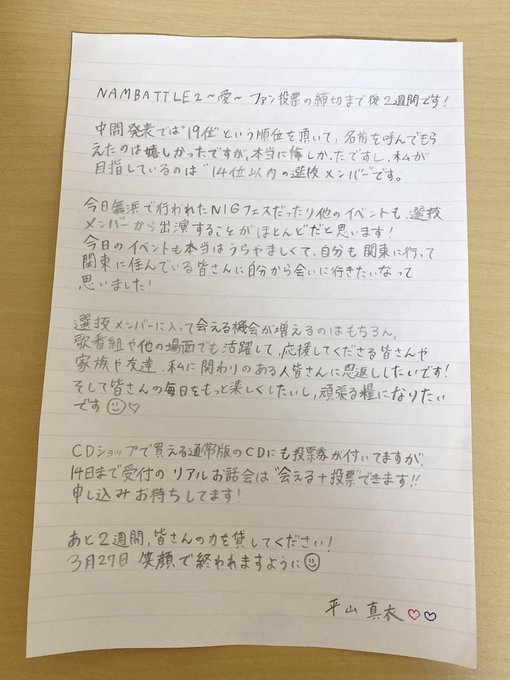 NAMBATTLE2～愛～ ファン投票の締切まで後2週間です!
中間発表では"19位"という順位を頂いて、名前を呼んでもら
えたのは嬉しかったですが、本当に悔しかったですし、私が
目指しているのは"14位以内の選抜メンバー"です。
今日舞浜で行われたNIGフェスだったり他のイベントも、選抜
メンバーから出演することがほとんどだと思います!
今日のイベントも本当はうらやましくて、自分も関東に行って
関東に住んでいる皆さんに自分から会いに行きたいなって
思いました!
選抜メンバーに入って会える機会が増えるのはもちろん、
歌番組や他の場面でも活躍して、応援してくださる皆さんや
家族や友達、私に関わりのある人皆さんに恩返ししたいです!
そして皆さんの毎日をもっと楽しくしたいし、頑張る糧になりたい
です☺♡
CDショップで買える通常版のCDにも投票券が付いてますが、
14日まで受付のリアルお話会は"会える+投票"できます!!
申し込みお待ちしてます!
あと2週間、皆さんの力を貸してください!
3月27日 笑顔で終われますように☺
平山 真衣♡♡